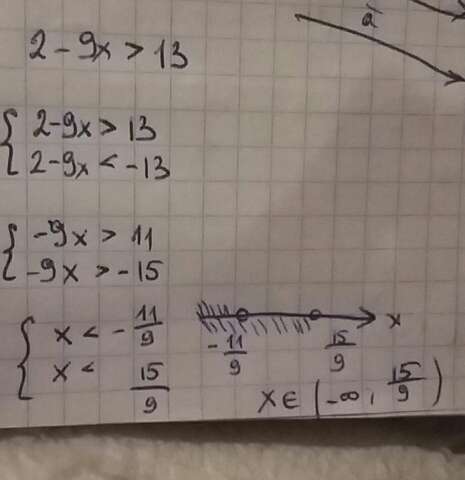 a
2 - 9x > 13
{ 2-9x > 13
2-9x < -13
{ -9x > 11
-9x > -15
{ x < - 11/9
x < 15/9
- 11/9 15/9 x
x ∈ (-∞, 15/9)